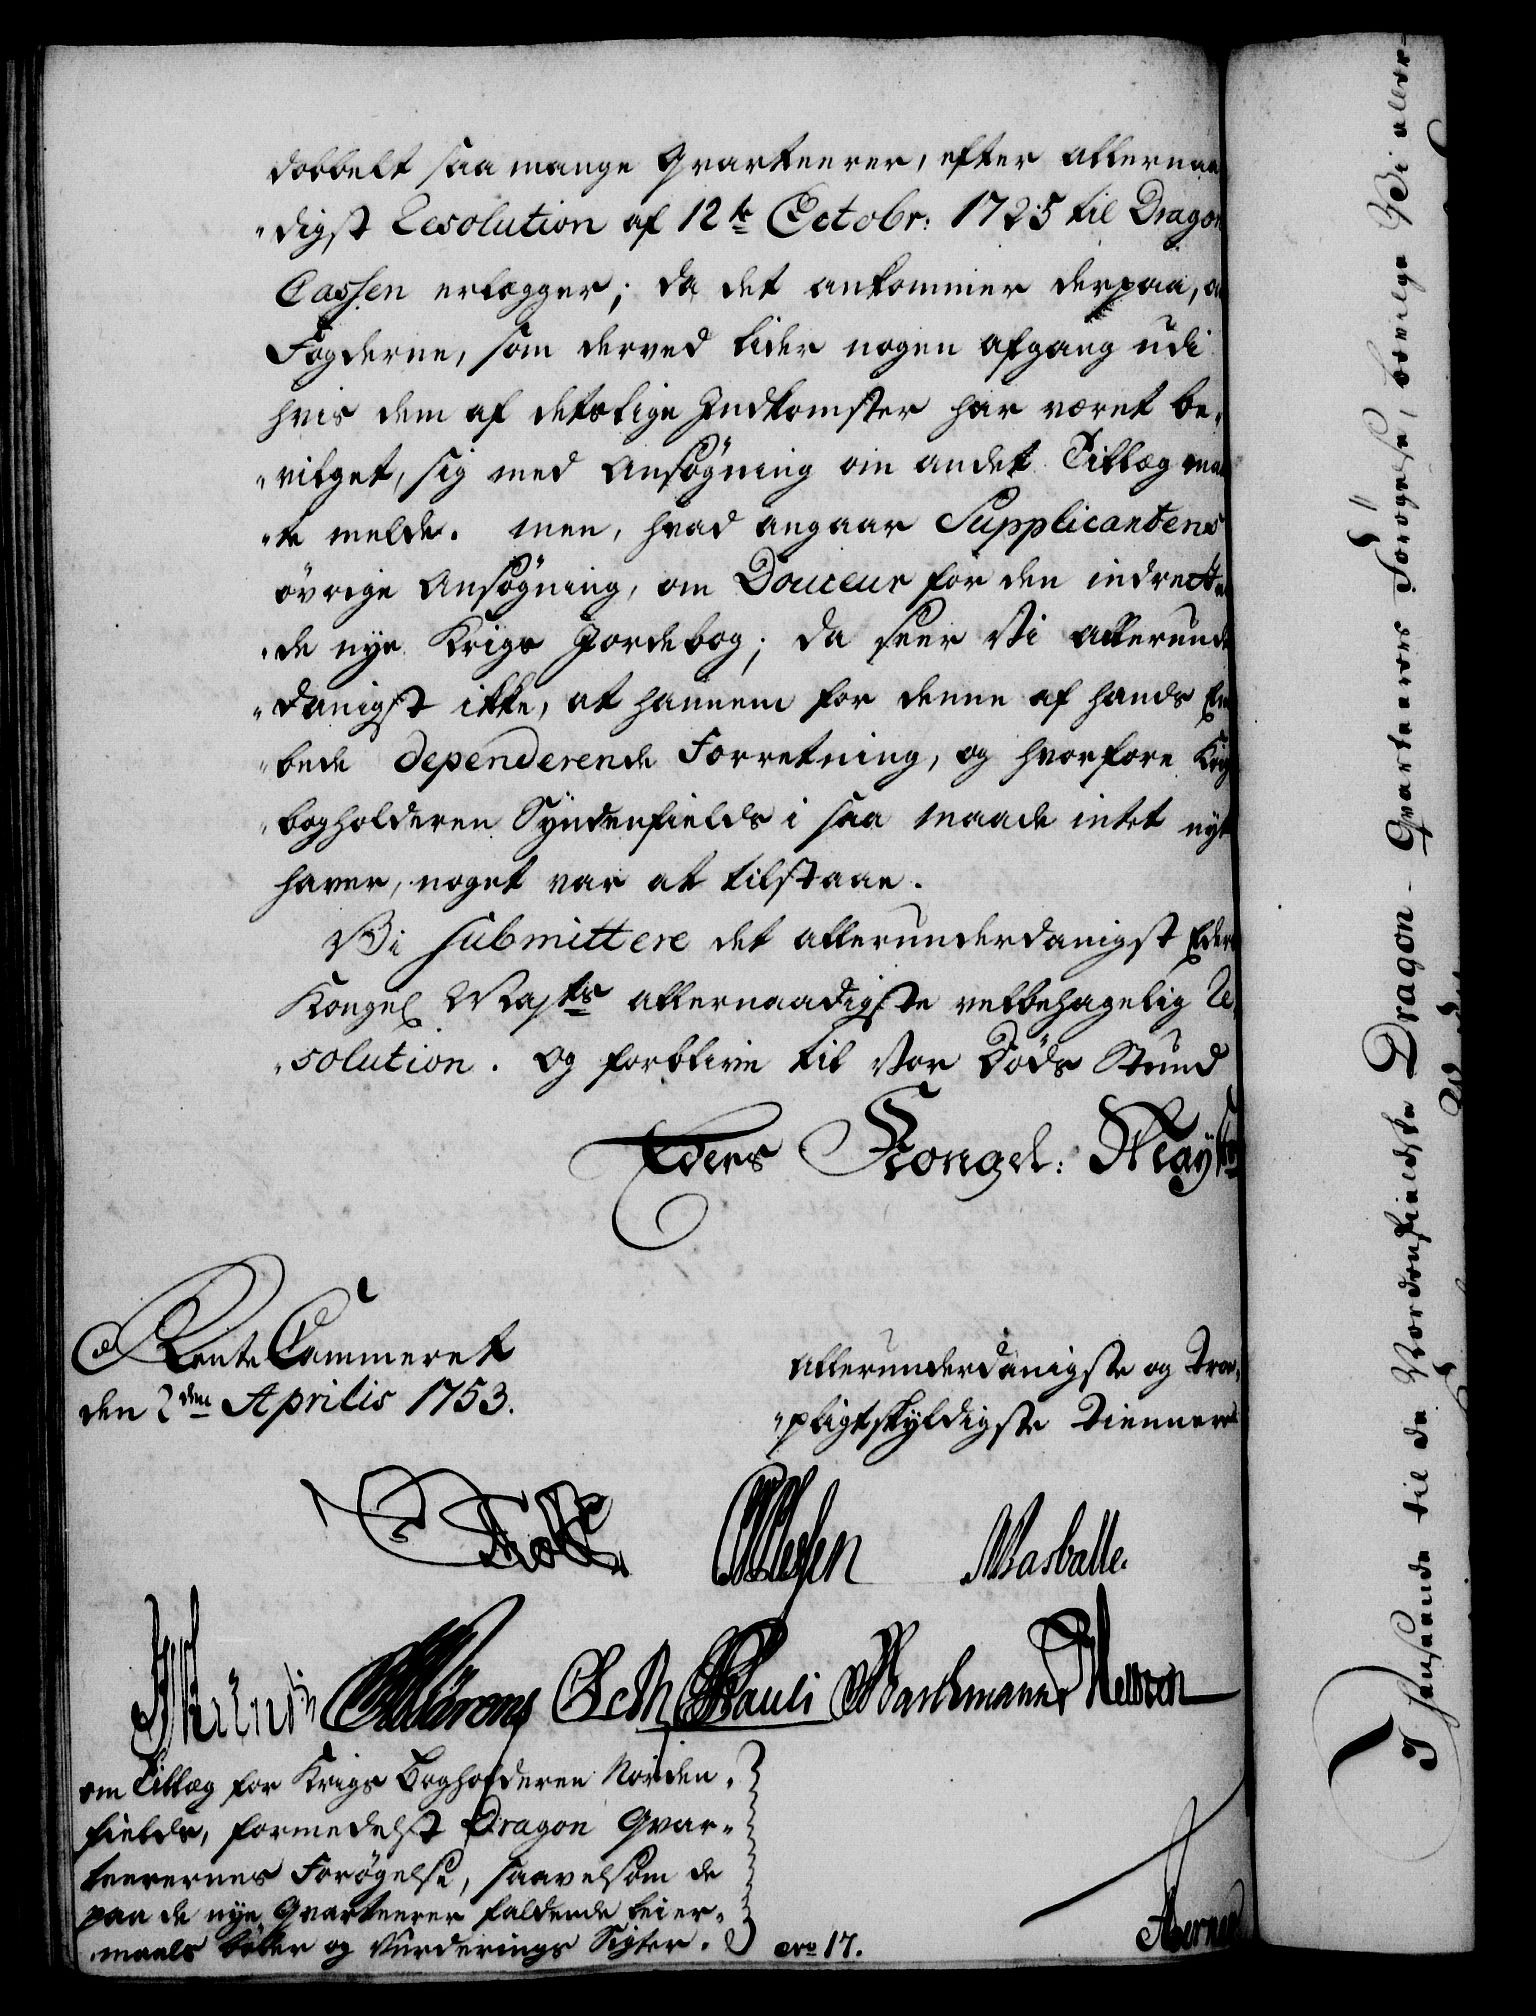 dobbelt saa mange Qvarteerer, efter allernaa
-digst Resolution af 12te Octobr: 1725 til Dragon
Cassen erlægger; da det ankommer derpaa, o
Fogderne, som derved lider nogen afgang udi
hvis dem af deslige Indkomster har været be-
-vilget, sig med Ansøgning om andet Tillæg maa
-te melde. men, hvad angaar Supplicantens
øvrige Ansøgning, om Douceur for den indrette
-de nye Krigs Jordebog; da seer Vi allerunder
-danigst ikke, at hannem for denne af hands Em
-bede dependerende Forretning, og hvorfore Krigs
-bogholderen Syndenfields i saa maade intet nyt
haver, noget var at tilstaae.
Vi submittere det allerunderdanigst Eders
Kongel Majts allernaadigste velbehagelig Re-
-solution. og forblive til Vor Døds Stund
Eders Kongel: May
RenteCammeret
den 2den Aprilis 1753.
Allerunderdanigste og Troe-
-pligtskyldigste Tienner
Masballe.
Pauli
om Tillæg for Krigs Bogholderen Norden-
fields, formedelst Dragon Qvar-
teerernes Forøgelse, saavelsom de
paa de nye Qvarteerer faldende Leier-
maals bøder og Vurderings Sigter.
Nro 17.
I Henseende til de Nordenfieldske Dragon-Qvarteerers Forøgelse, bevilge Vi aller-